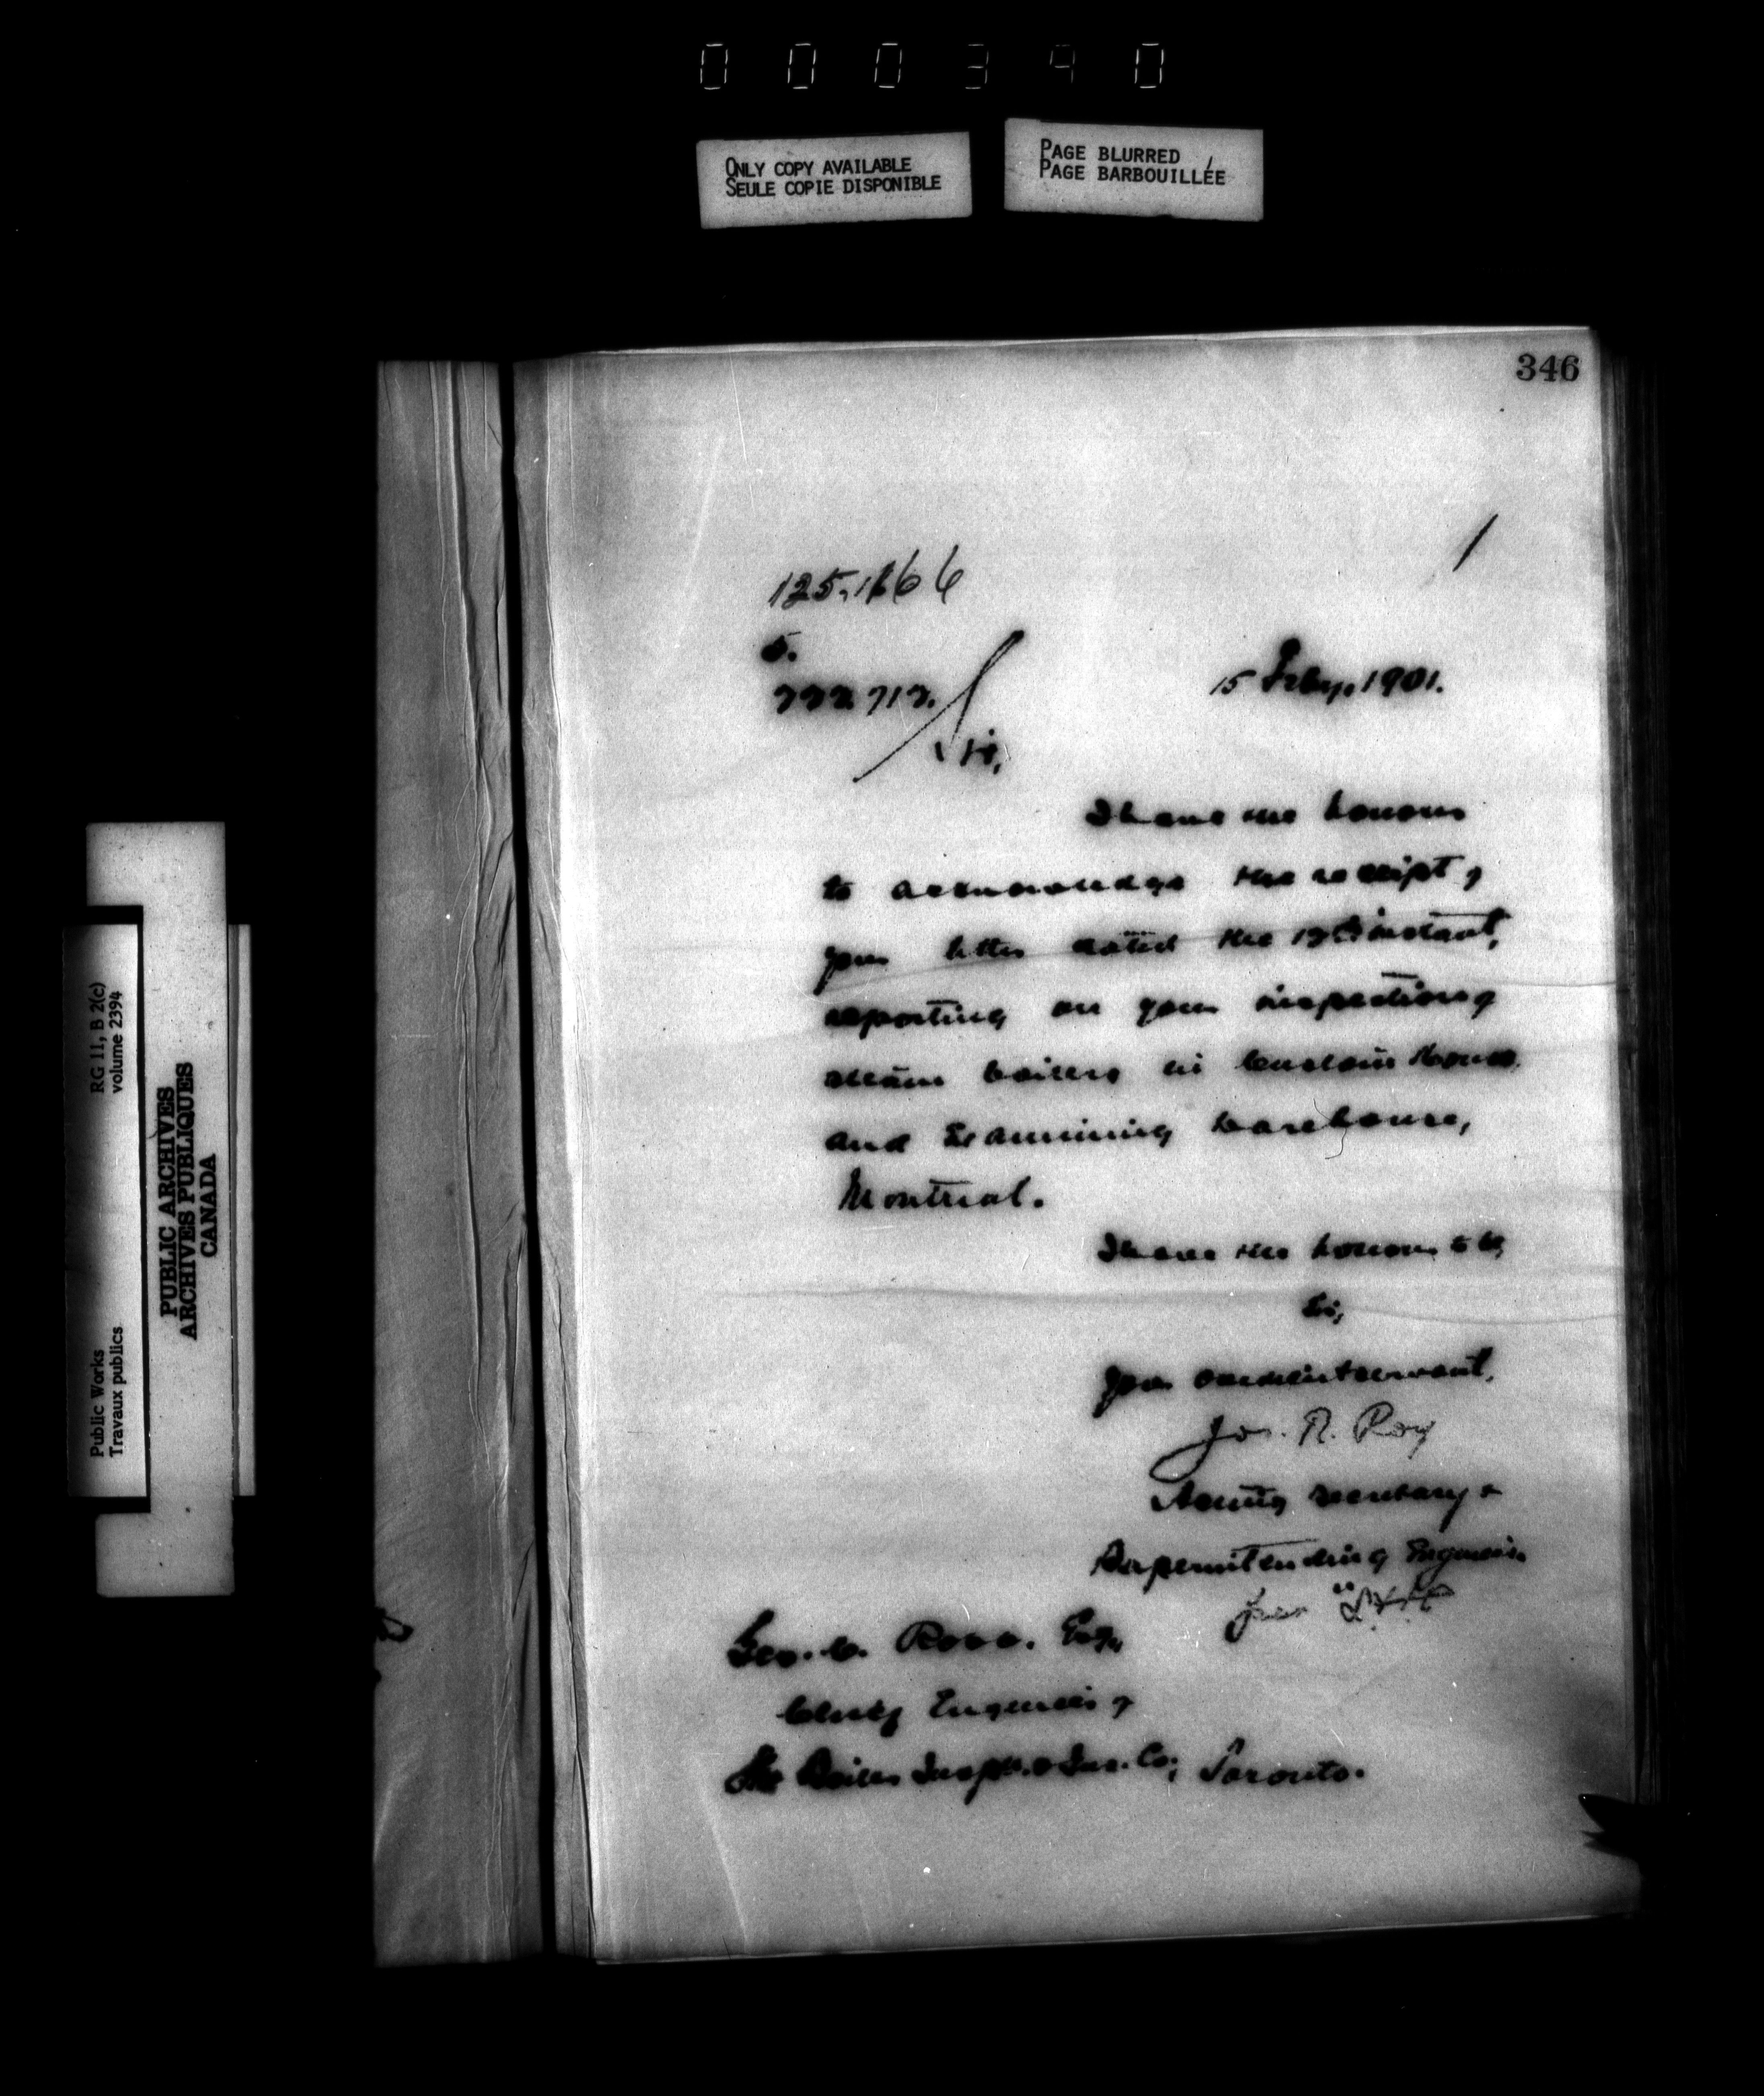 000340
ONLY COPY AVAILABLE
SEULE COPIE DISPONIBLE
PAGE BLURRED
PAGE BARBOUILLÉE
346
RG 11, B 2(c)
volume 2394
Public Works
Travaux publics
PUBLIC ARCHIVES
ARCHIVES PUBLIQUES
CANADA
1
125.1166
5.
15 Feby. 1901.
Sir,
I have the honour
to acknowledge the receipt of
your letter dated the instant,
reporting on your inspection of
steam boilers in Custom House
and Examining Warehouse,
Montreal.
I have the honour to be,
Sir,
Your obedient servant,
Jos. R. Roy
Acting Secretary &
Superintending Engineer.
Geo. C. Robb. Esq,
Chief Engineer of
The Boiler Inspn. & Ins. Co; Toronto.